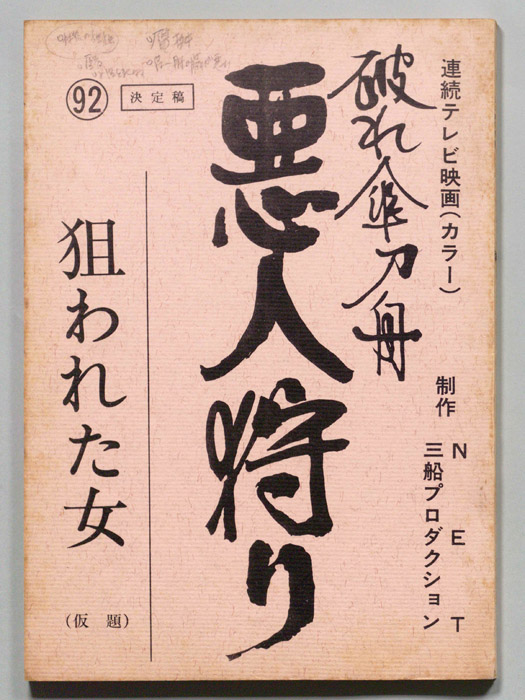 連続テレビ映画(カラー)
破れ傘刀舟
悪人狩り
制作 NET
三船プロダクション
92
決定稿
狙われた女
(仮題)